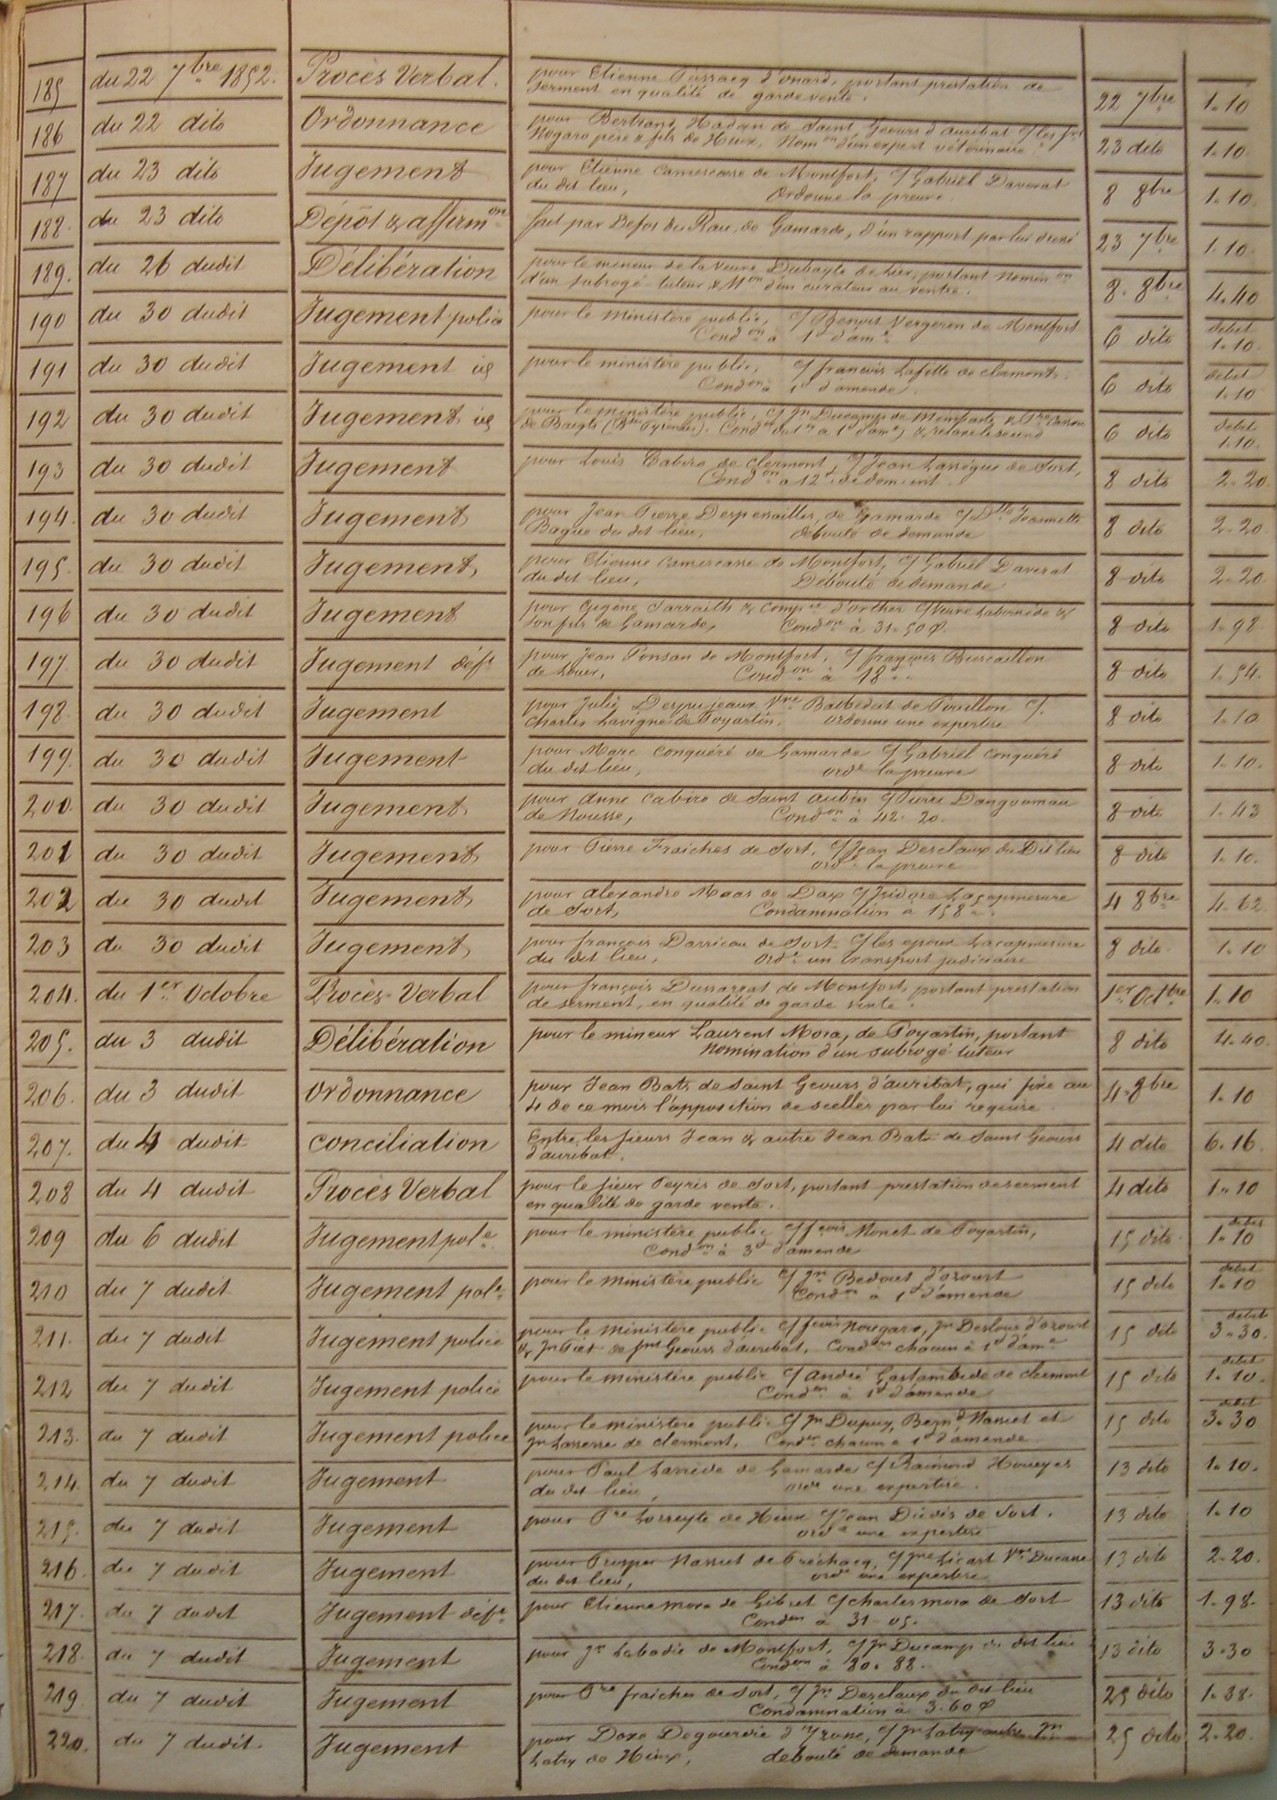 185 du 22 7bre 1852. Procès Verbal. pour Etienne d'onard, portant prestation de
serment en qualité de garde vente. 22 7bre 1.10
186 du 22 dito Ordonnance pour Bertrand de Saint Geours d'auribat c/ les
Nogaro père & fils de Hinx, Nomon d'un expert vétérinaire 23 dito 1.10
187 du 23 dito Jugement pour Etienne Camescasse de Montfort, c/ Gabriel Daverat
du dit lieu, Ordonne la preuve 8 8bre 1.10.
188. du 23 dito Dépôt & affirmon fait par Defos du Rau, de Gamarde, d'un rapport par lui dressé 23 7bre 1.10.
189. du 26 dudit Délibération pour le mineur de la Veuve de Lier, portant Nominon
d'un subrogé-tuteur & Mon d'un curateur au ventre. 8. 8bre 4.40
190 du 30 dudit Jugement police pour le ministère public, c/ Benoit Vergeren de Montfort
Condon à 1f d'ame 6 dito debet
1.10.
191 du 30 dudit Jugement id pour le ministère public, c/ françois Lafitte de clermont.
Condon à 1f d'amende 6 dito debet
1.10
192 du 30 dudit Jugement id pour le ministère public, c/ Jn Ducamp de
de Baigts (Bses Pyrénées). Condon du 1er à 1f d'ame, & relaxe le second 6 dito debet
1.10.
193 du 30 dudit Jugement pour Louis Cabiro de clermont c/ Jean Larrègue de Sort,
Condon à 12f 8 dito 2.20
194. du 30 dudit Jugement pour Jean Pierre Desperailles, de Gamarde c/ Dlle Jeannette
du dit lieu, débouté de demande 8 dito 2.20
195. du 30 dudit Jugement, pour Etienne Camescasse de Montfort, c/ Gabriel Daverat
du dit lieu, Débouté de demande 8 dito 2.20
196 du 30 dudit Jugement pour Eugène Sarraith & compie d'orthez c/ Veuve &
son fils de Gamarde, Condon à 31.50 8 dito 1.98
197. du 30 dudit Jugement deft pour Jean Ponsan de Montfort, c/ françois
de Louer, Condon à 18 8 dito 1.54.
198. du 30 dudit Jugement pour Julie Vve Barbedat de Pouillon c/.
Charles Lavigne de Poyartin. ordonne une expertise 8 dito 1.10
199. du 30 dudit Jugement pour Marc Conquéré de Gamarde c/ Gabriel Conquéré
du dit lieu, orde la preuve 8 dito 1.10.
200. du 30 dudit Jugement pour Anne Cabiro de Saint aubin c/ Pierre Dangoumau
de Nousse, Condon à 42.20. 8 dito 1.43
201 du 30 dudit Jugement pour Pierre Fraiches de Sort, c/ Jean Desclaux du Dit lieu
orde la preuve 8 dito 1.10.
202 du 30 dudit Jugement pour alexandre Maas de Dax c/ Isidore
de Sort, Condamnation à 158 4 8bre 4.62
203 du 30 dudit Jugement pour françois Darricau de Sort c/ les époux
du dit lieu, orde un transport judiciaire 8 dito 1.10
204. du 1er Octobre Procès-Verbal pour françois de Montfort, portant prestation
de serment, en qualité de garde vente. 1er Octbre 1.10
205. du 3 dudit Délibération pour le mineur Laurent Mora, de Poyartin, portant
nomination d'un subrogé tuteur 8 dito 4.40.
206. du 3 dudit Ordonnance pour Jean Bats de Saint Geours d'auribat, qui fixe au
4 de ce mois l'apposition de scellés par lui requise. 4.8bre 1.10
207. du 4 dudit Conciliation Entre les sieurs Jean & autre Jean Bats de Saint Geours
d'auribat. 4 dito 6.16.
208 du 4 dudit Procès Verbal pour le sieur Peyrès de Sort, portant prestation de serment
en qualité de garde vente. 4 dito 1.10
209 du 6 dudit Jugement pole pour le ministère public c/ fçois Moret de Poyartin,
Condon à 3f d'amende 15 dito debet
1.10
210 du 7 dudit Jugement pole pour le ministère public c/ Jn Bedout d'ozourt
Condon à 1f d'amende 15 dito debet
1.10
211. du 7 dudit Jugement police pour le ministère public c/ fçois Nougaro, Jn Deslous d'ozourt
& Jn Piet de Snt Geours d'auribat, Condon chacun à 1f d'ame 15 dito debet
3.30.
212 du 7 dudit Jugement police pour le ministère public c/ André Gastambide de clermont
Condon à 1f d'amende 15 dito debet
1.10.
213. du 7 dudit Jugement police pour le ministère public c/ Jn Dupuy, Bernd Nassiet et
Jn Lasserre de clermont, Condon chacun à 1f d'amende 15 dito debet
3.30
214. du 7 dudit Jugement pour Paul Larrède de Gamarde c/ Raimond
du dit lieu, orde une expertise. 13 dito 1.10.
215. du 7 dudit Jugement pour Pre Lorreyte de Hinx c/ Jean Diédis de Sort.
orde une expertise 13 dito 1.10
216. du 7 dudit Jugement pour Prosper Nassiet de Préchacq, c/ Jne Licart Vve Ducasse
du dit lieu, orde une expertise 13 dito 2.20.
217. du 7 dudit Jugement déft pour Etienne Mora de Gibret c/ Charles Mora de Sort
Condon à 31.05. 13 dito 1.98.
218. du 7 dudit Jugement pour Labadie de Montfort, c/ Jn Ducamp du dit lieu
Condon à 80.88. 13 dito 3.30
219 du 7 dudit Jugement pour Pre fraiches de Sort, c/ Jn Desclaux du dit lieu
Condamnation à 3.60 25 dito 1.38.
220. du 7 dudit. Jugement pour Doxe Degourdie d'Yzosse, c/ Jn Latry autre Jn
Latry de Hinx, débouté de demande 25 dito 2.20.